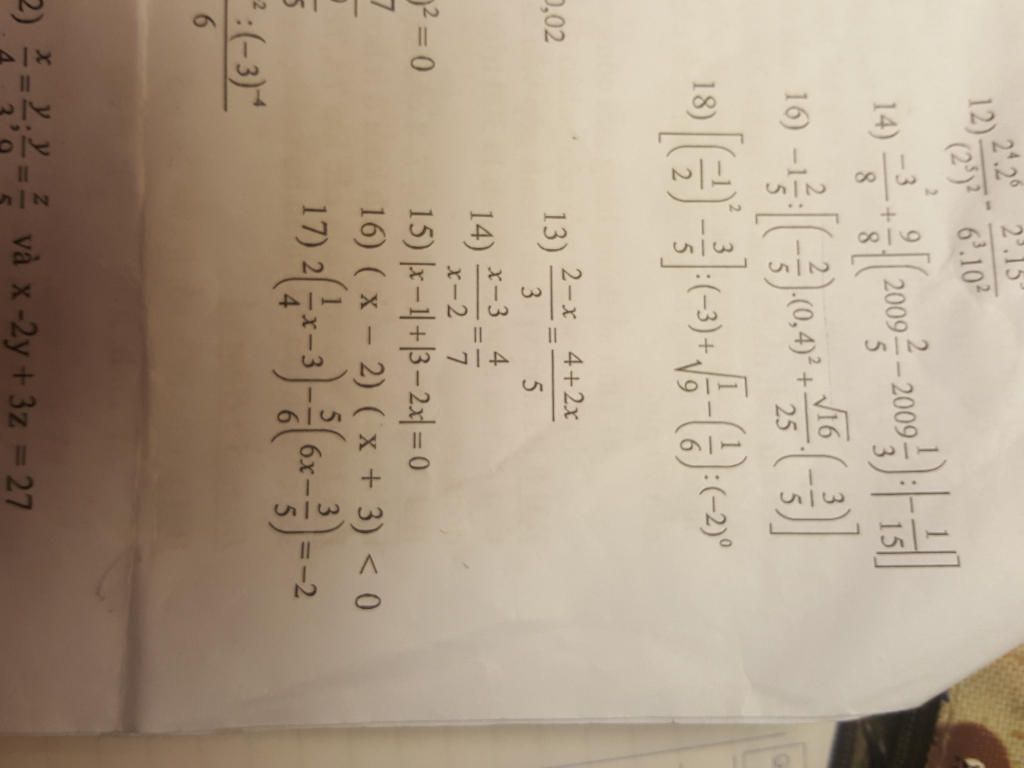 12) \frac{2^4.2^6}{(2^5)^2} - \frac{2^5.15^3}{6^3.10^2}
14) \frac{-3}{8}^2 + \frac{9}{8}.[(2009\frac{2}{5} - 2009\frac{1}{3}) : |-\frac{1}{15}|]
0,02
16) -1\frac{2}{5} : [(-\frac{2}{5}).(0,4)^2 + \frac{\sqrt{16}}{25}.(-\frac{3}{5})]
18) [(\frac{-1}{2})^2 - \frac{3}{5}] : (-3) + \sqrt{\frac{1}{9}} - (\frac{1}{6}) : (-2)^0
13) \frac{2-x}{3} = \frac{4+2x}{5}
)^2 = 0
14) \frac{x-3}{x-2} = \frac{4}{7}
15) |x-1| + |3-2x| = 0
16) ( x - 2) ( x + 3) < 0
17) 2(\frac{1}{4}x - 3) - \frac{5}{6}(6x - \frac{3}{5}) = -2
^2 : (-3)^{-4}
6
2) \frac{x}{4} = \frac{y}{3}; \frac{y}{9} = \frac{z}{5} và x -2y + 3z = 27